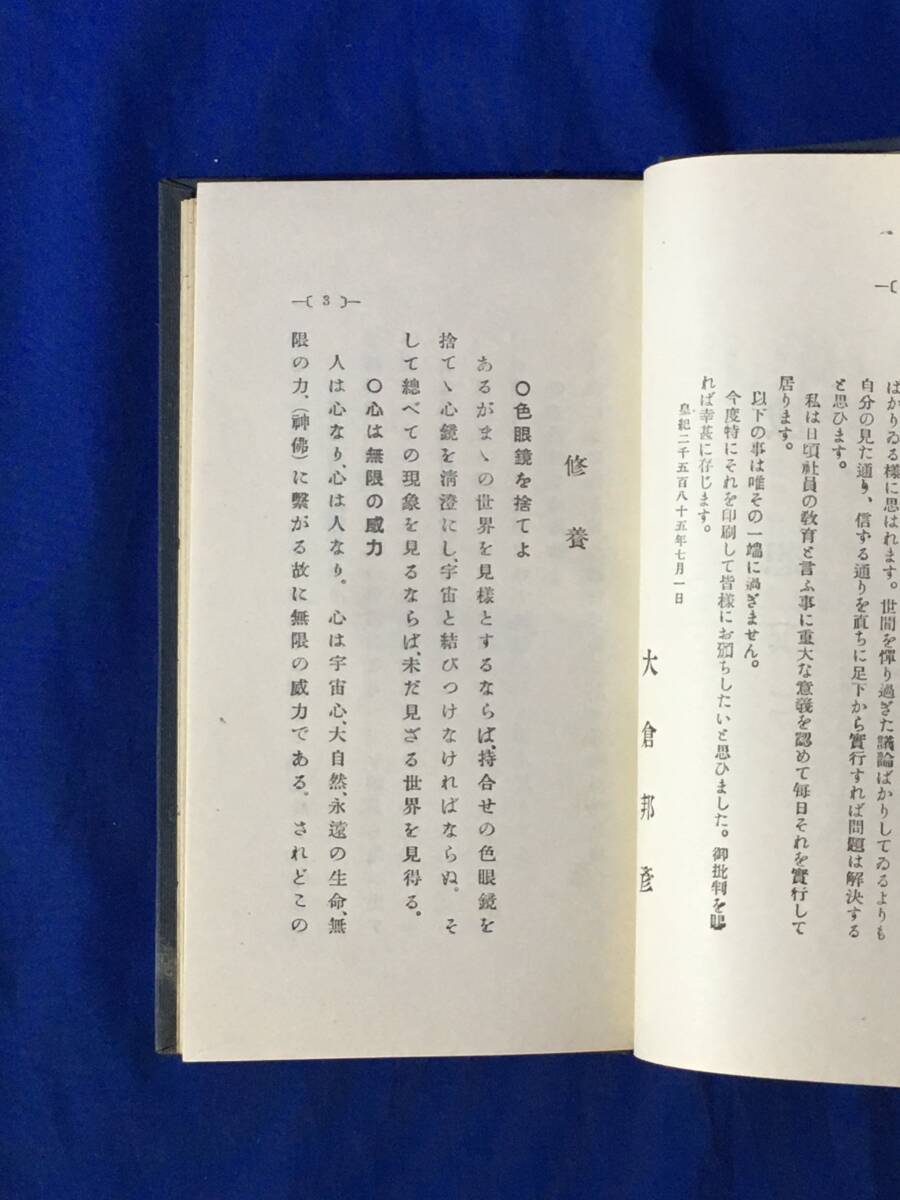 ばかりゐる様に思はれます。世間を憚り過ぎた議論ばかりしてゐるよりも
自分の見た通り、信ずる通りを直ちに足下から實行すれば問題は解決する
と思ひます。
私は日頃社員の教育と言ふ事に重大な意義を認めて毎日それを實行して
居ります。
以下の事は唯その一端に過ぎません。
今度特にそれを印刷して皆様にお頒ちしたいと思ひました。御批判を賜
れば幸甚に存じます。
皇紀二千五百八十五年七月一日
大倉邦彦
修養
〇色眼鏡を捨てよ
あるがまゝの世界を見様とするならば、持合せの色眼鏡を
捨てゝ心鏡を清澄にし宇宙と結びつけなければならぬ。そ
して總べての現象を見るならば、未だ見ざる世界を見得る。
〇心は無限の威力
人は心なり、心は人なり。心は宇宙心、大自然、永遠の生命、無
限の力、(神佛)に繫がる故に無限の威力である。されどこの
—( 3 )—